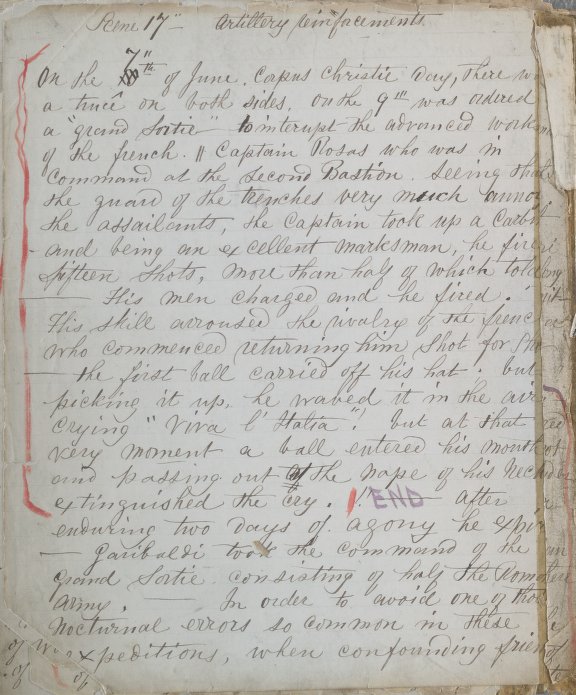 Scene 17" - Artillery reinforcements
On the 7"th of June. Corpus Christie Day, There wa
a truce on both sides, on the 9th was ordered
a "grand Sortie" to interupt the advanced works
of the french. || Captain Rosas who was in
command at the second Bastion. Seeing that
the guard of the trenches very much annoy
the assailants, the Captain took up a Carbi
and being an excellent marksman, he fired
fifteen shots, more than half of which told
— His men charged and he fired.
His skill arroused the rivalry of the french
who commenced returning him shot for sho
— the first ball carried off his hat. but
picking it up, he waved it in the air
Crying "Viva l' Italia". but at that
very moment a ball entered his mouth
and passing out of the nape of his neck
extinguished the Cry. END — After
enduring two days of agony he expir
— Garibaldi took the command of the
grand Sortie consisting of half the Roman
Army. — In order to avoid one of thos
Nocturnal errors so common in these
expeditions, when confounding frien